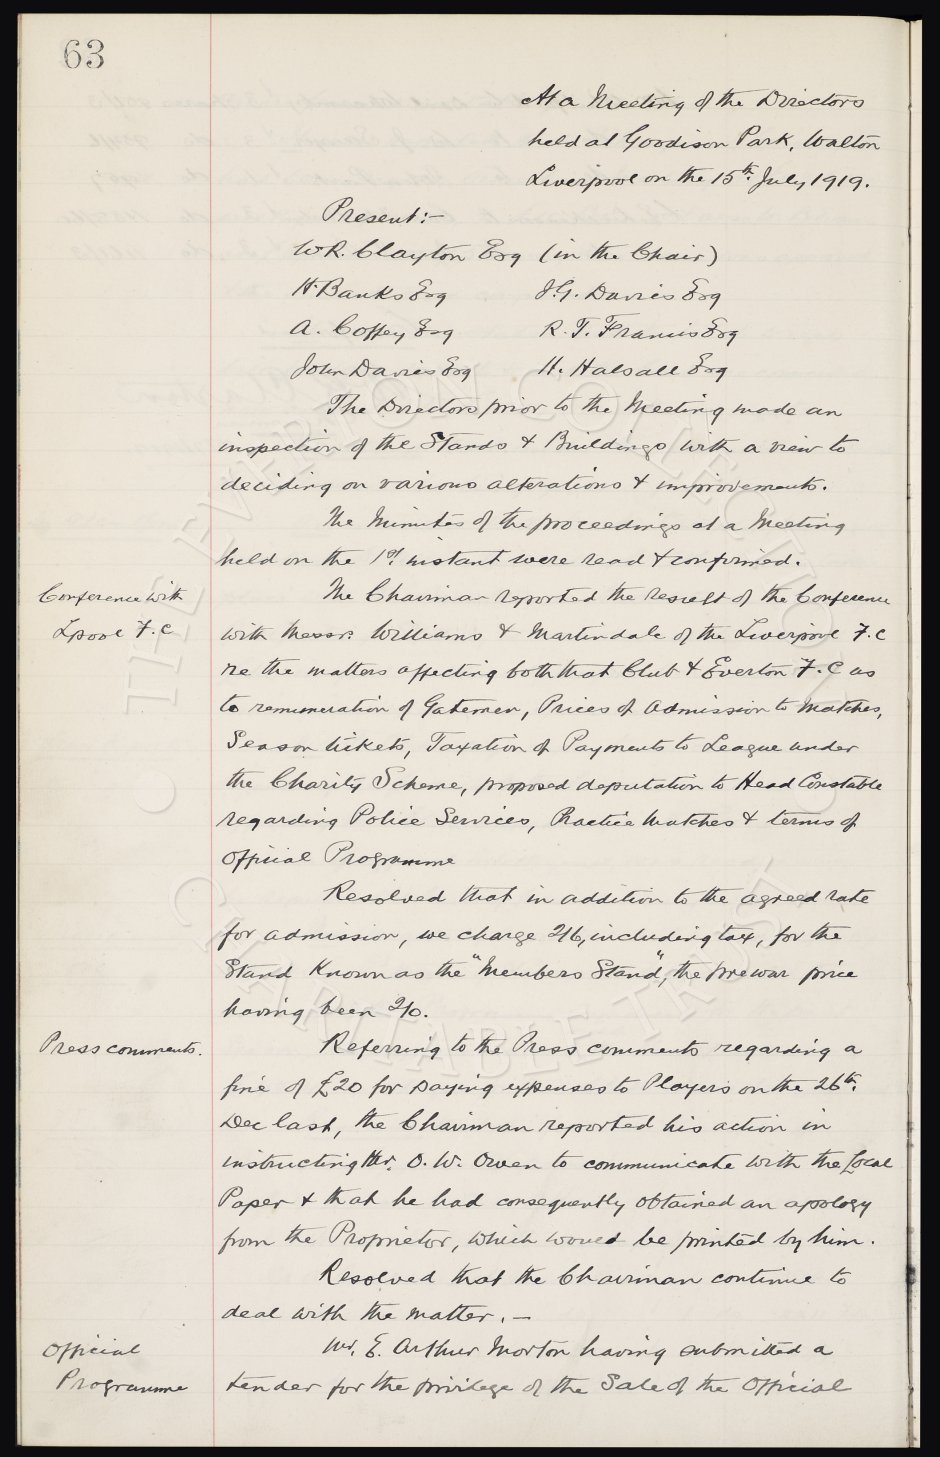 63
At a Meeting of the Directors
held at Goodison Park, Walton
Liverpool on the 15th. July 1919.
Present:-
W.R. Clayton Esq (in the Chair)
H. Banks Esq J.G. Davies Esq
A. Coffey Esq R. T. Francis Esq
John Davies Esq H. Halsall Esq
The Directors prior to the Meeting made an
inspection of the Stands & Buildings with a view to
deciding on various alterations & improvements.
The Minutes of the proceedings at a Meeting
held on the 1st. instant were read & confirmed.
Conference with The Chairman reported the result of the Conference
Lpool F.C with Messrs. Williams & Martindale of the Liverpool F.C
re the matters affecting both that Club & Everton F.C as
to remuneration of Gatemen, Prices of Admission to Matches,
Season tickets, Taxation of Payments to League under
the Charity Scheme, proposed deputation to Head Constable
regarding Police Services, Practice Matches & terms of
Official Programme
Resolved that in addition to the agreed rate
for admission, we charge 2/6, including tax, for the
Stand known as the "Members Stand", the prewar price
having been 2/0.
Press comments. Referring to the Press comments regarding a
fine of £20 for paying expenses to Players on the 26th.
Dec last, the Chairman reported his action in
instructing Mr. O. W. Owen to communicate with the Local
Paper & that he had consequently obtained an apology
from the Proprietor, which would be printed by him.
Resolved that the Chairman continue to
deal with the matter. -
Official Mr. E. Arthur Morton having submitted a
Programme tender for the privilege of the Sale of the Official